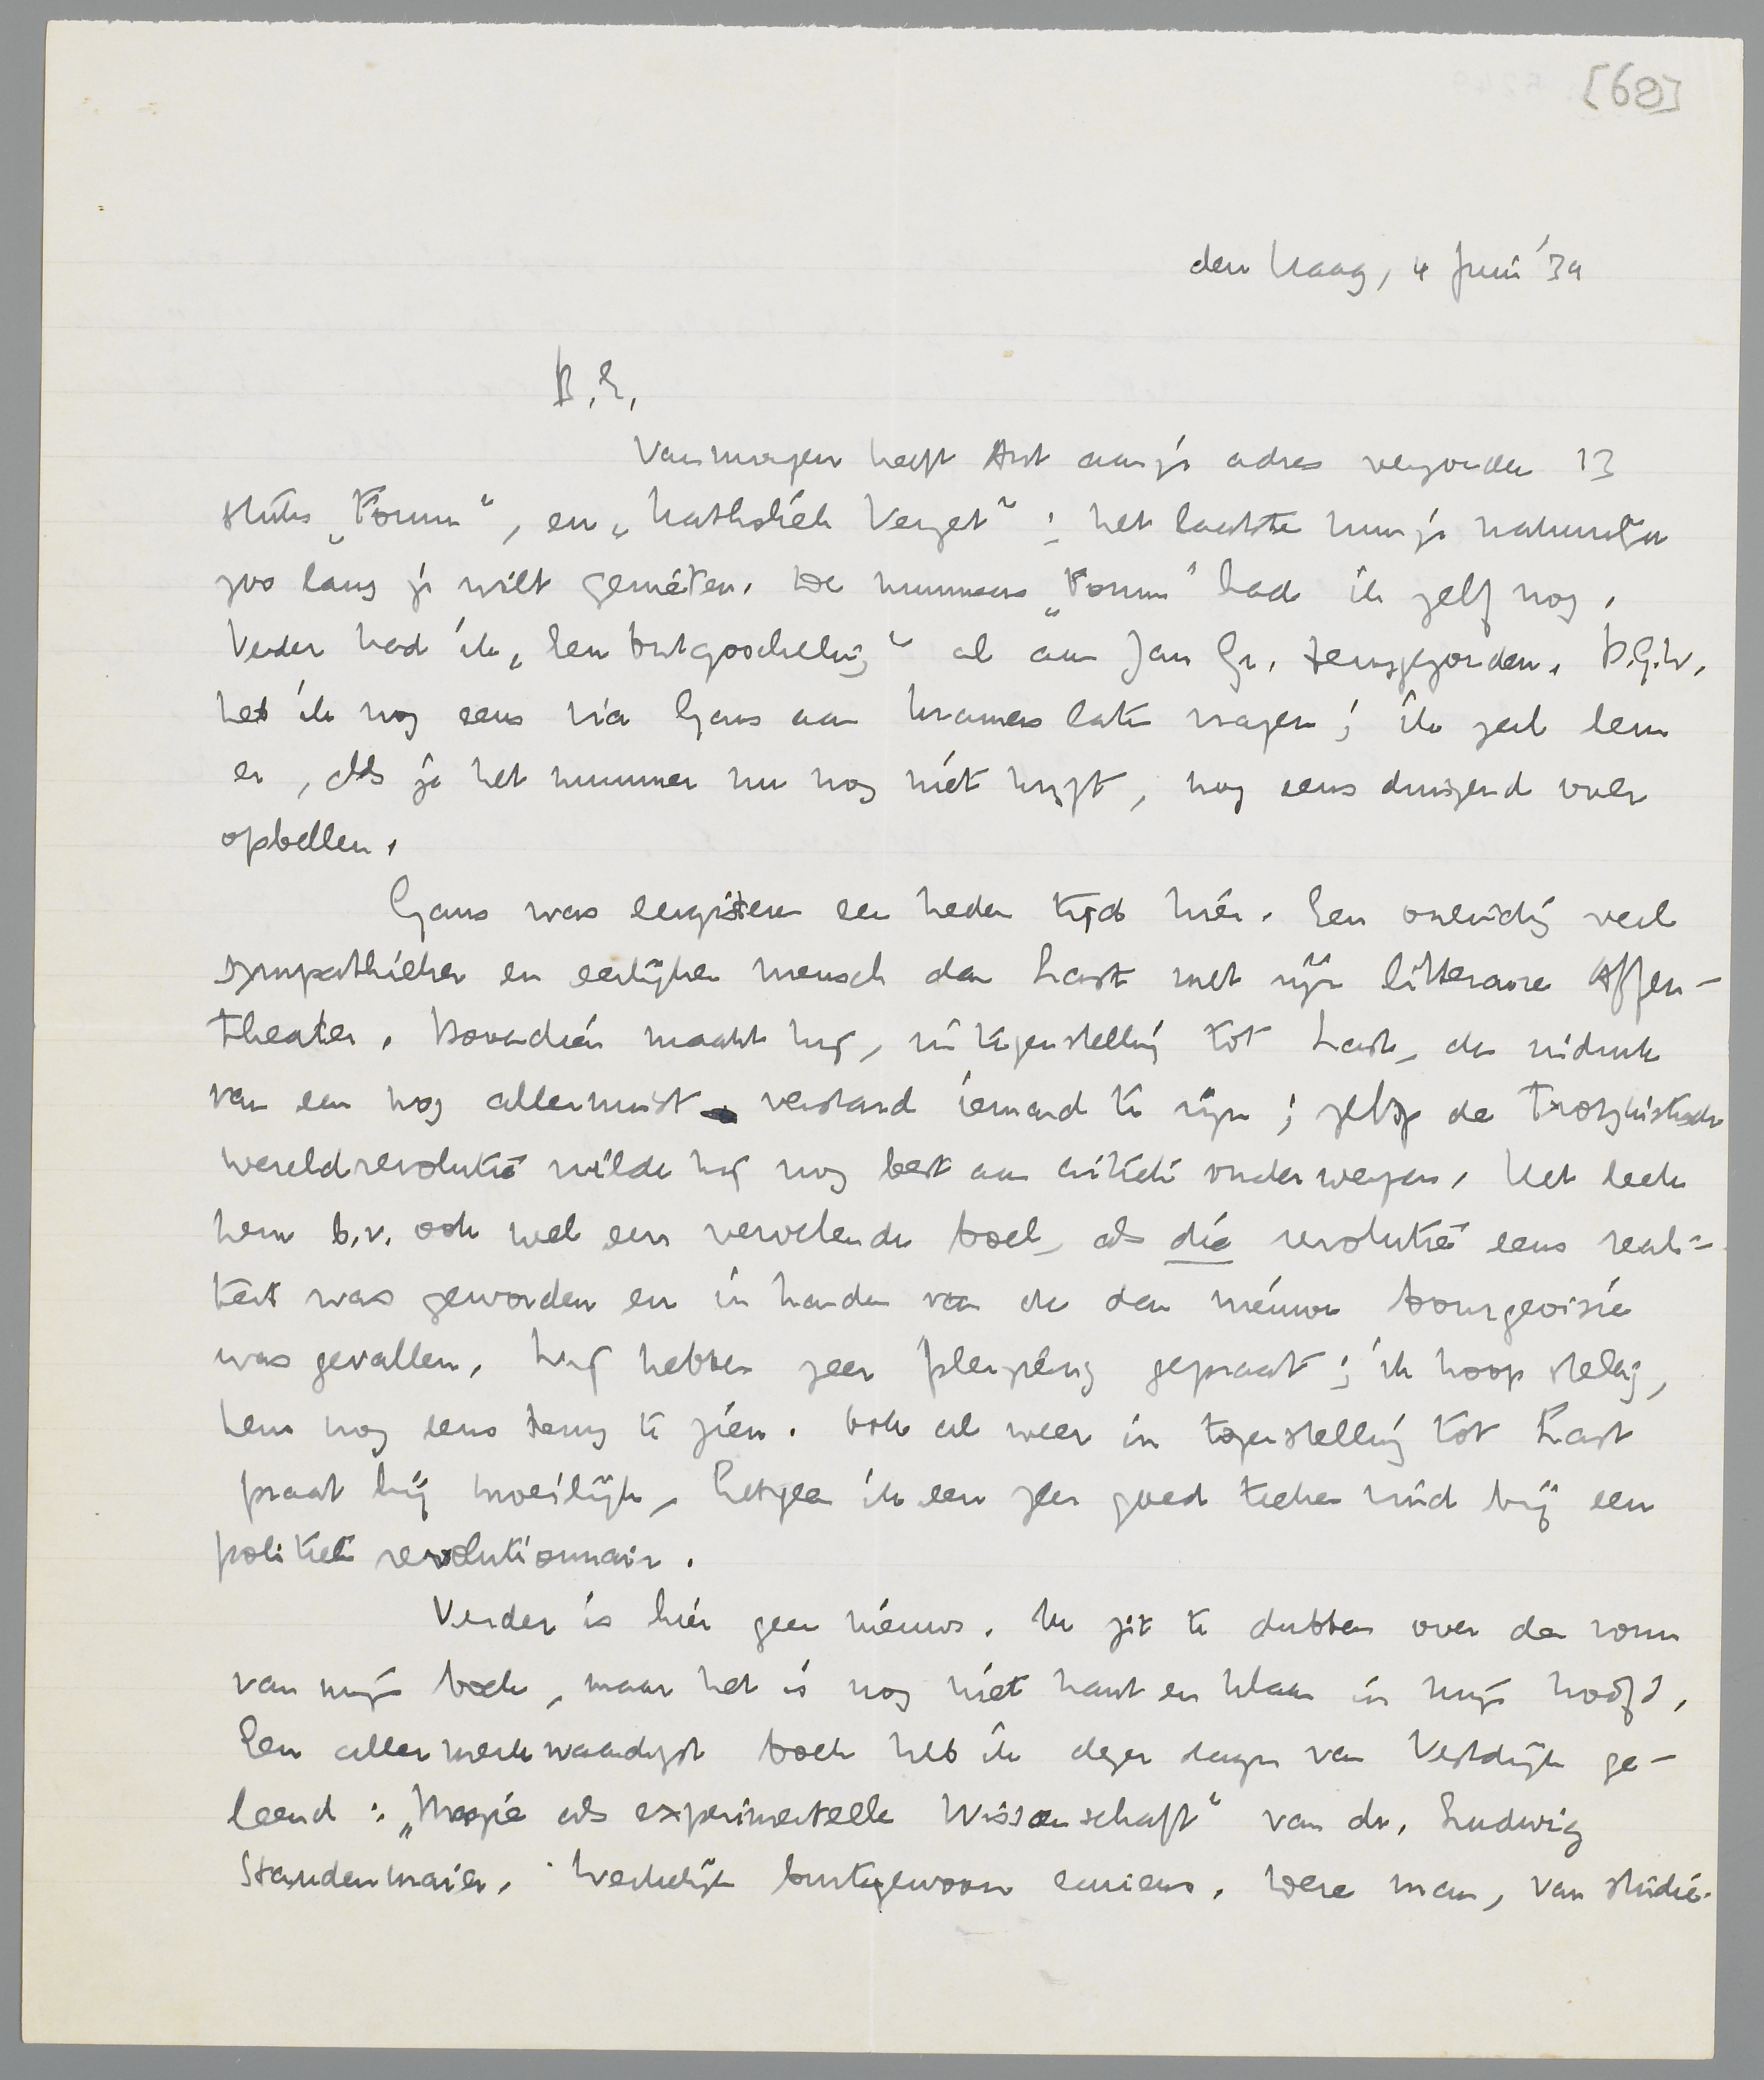 [68]
den Haag, 4 Juni '34
B.E.
Vanmorgen heeft Ant aan je adres verzonden 13
stuks „Forum”, en „Katholiek Verzet”; het laatste kun je natuurlijk
zoo lang je wilt genieten. De nummers „Forum” had ik zelf nog.
Verder had ik „Een Ontgoocheling” al aan Jan Gr. teruggezonden. D.G.W.
heb ik nog eens via Gans aan Kramers laten vragen; ik zal hem
er, als je het nummer nu nog niet krijgt, nog eens dwingend over
opbellen.
Gans was eergisteren een heelen tijd hier. Een oneindig veel
sympathieker en eerlijker mensch dan Last met zijn litteraire Affen-
theater. Bovendien maakt hij, in tegenstelling tot Last, den indruk
van een nog allerminst verstard iemand te zijn; zelfs de Trotzkistische
wereldrevolutie wilde hij nog best aan critiek onderwerpen. Het leek
hem b.v. ook wel een vervelende boel, als die revolutie eens reali-
teit was geworden en in handen van de dan nieuwe bourgeoisie
was gevallen. Wij hebben zeer plezierig gepraat; ik hoop stellig,
hem nog eens terug te zien. Ook al weer in tegenstelling tot Last
praat hij moeilijk, hetgeen ik een zeer goed teeken vind bij een
politiek revolutionnair.
Verder is hier geen nieuws. Ik zit te dubben over den vorm
van mijn boek, maar het is nog niet kant en klaar in mijn hoofd.
Een allermerkwaardigst boek heb ik dezer dagen van Vestdijk ge-
leend: „Magie als experimentelle Wissenschaft” van dr. Ludwig
Staudenmaier. Werkelijk buitengewoon curieus. Deze man, van studie-